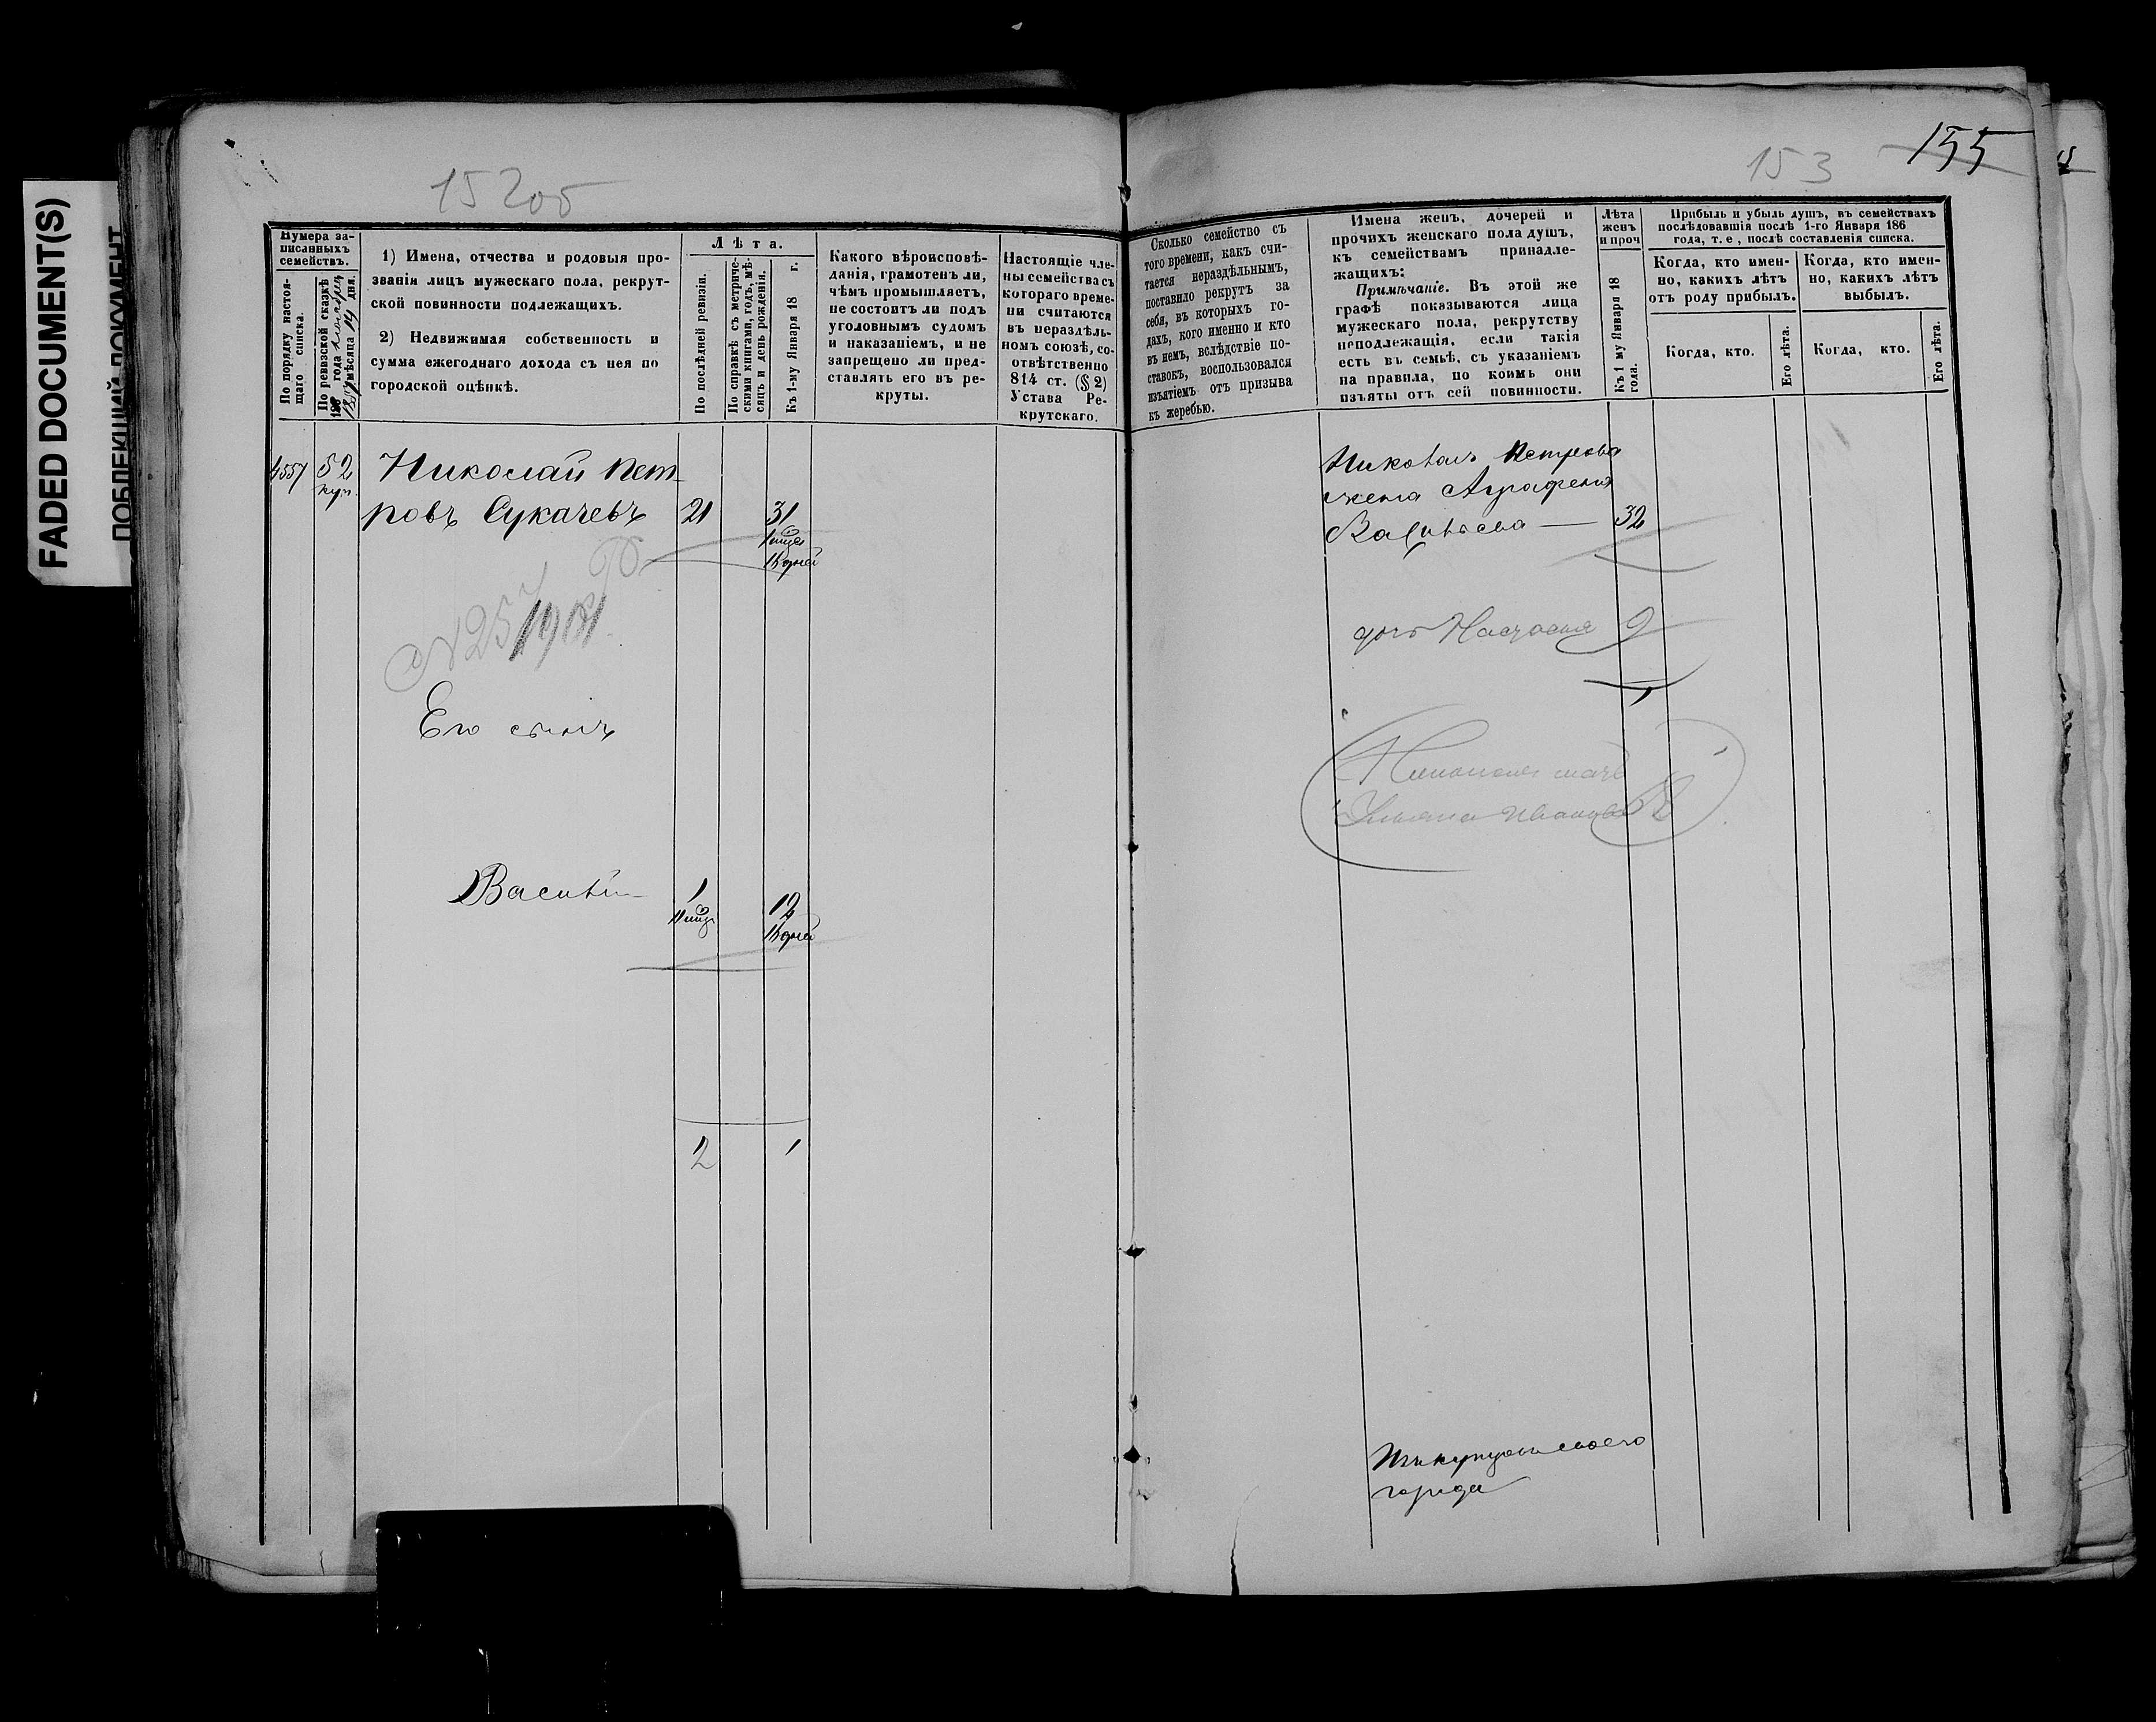 FADED DOCUMENT(S)
152об
153
155
Нумера за-
писанныхъ
семействъ.
По порядку настоя-
щаго списка.
По ревизской сказкѣ
года
мѣсяца 14 дня.
1) Имена, отчества и родовыя про-
званія лицъ мужескаго пола, рекрут-
ской повинности подлежащихъ.
2) Недвижимая собственность и
сумма ежегоднаго дохода съ нея по
городской оцѣнкѣ.
Лѣта.
По послѣдней ревизіи.
По справкѣ съ метриче-
скими книгами, годъ, мѣ-
сяцъ и день рожденія.
Къ 1-му Января 18 г.
Какого вѣроисповѣ-
данія, грамотенъ ли,
чѣмъ промышляетъ,
не состоитъ ли подъ
уголовнымъ судомъ
и наказаніемъ, и не
запрещено ли пред-
ставлять его въ ре-
круты.
Настоящіе чле-
ны семейства съ
котораго време-
ни считаются
въ нераздѣль-
номъ союзѣ, со-
отвѣтственно
814 ст. (§ 2)
Устава Ре-
крутскаго.
Сколько семейство съ
того времени, какъ счи-
тается нераздѣльнымъ,
поставило рекрутъ за
себя, въ которыхъ го-
дахъ, кого именно и кто
въ немъ, вслѣдствіе по-
ставокъ, воспользовался
изъятіемъ отъ призыва
къ жеребью.
Имена женъ, дочерей и
прочихъ женскаго пола душъ,
къ семействамъ принадле-
жащихъ:
Примѣчаніе. Въ этой же
графѣ показываются лица
мужескаго пола, рекрутству
неподлежащія, если такія
есть въ семьѣ, съ указаніемъ
на правила, по коимъ они
изъяты отъ сей повинности.
Лѣта
женъ
и проч
Къ 1 му Января 18
года.
Прибыль и убыль душъ, въ семействахъ
послѣдовавшія послѣ 1-го Января 186
года, т. е, послѣ составленія списка.
Когда, кто имен-
но, какихъ лѣтъ
отъ роду прибылъ.
Когда, кто имен-
но, какихъ лѣтъ
выбылъ.
Когда, кто.
Его лѣта.
Когда, кто.
Его лѣта.
4557 52 Николай Пет-
куп.
ровъ Сукачевъ 21 31
Его сынъ
Василій 1 12
2 1
Николая Петрова
жена Аграфена
Васильева 32
дочь Настасья 9
Николая мать
Ульяна Иванова
города